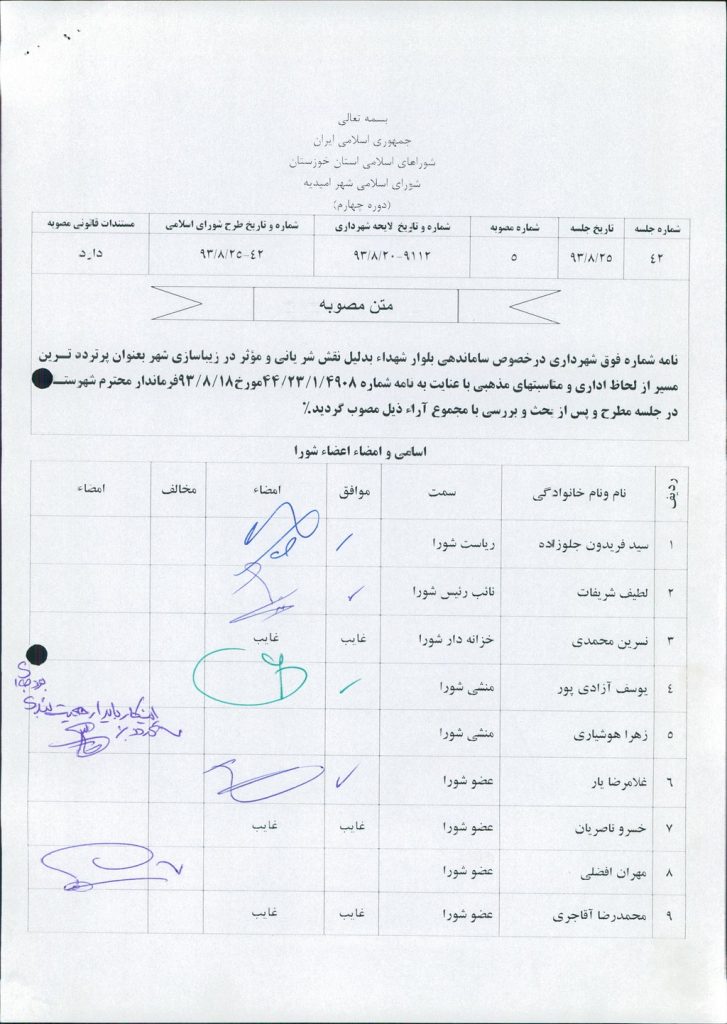 بسمه تعالی
جمهوری اسلامی ایران
شوراهای اسلامی استان خوزستان
شورای اسلامی شهر امیدیه
(دوره چهارم)
شماره جلسه تاریخ جلسه شماره مصوبه شماره و تاریخ لایحه شهرداری شماره و تاریخ طرح شورای اسلامی مستندات قانونی مصوبه
٤٢ ۹۳/۸/۲۵ ٥ ۹۳/۸/۲۰-۹۱۱۲ ۹۳/۸/۲۵-٤۲ دارد
متن مصوبه
نامه شماره فوق شهرداری درخصوص ساماندهی بلوار شهداء بدلیل نقش شریانی و مؤثر در زیباسازی شهر بعنوان پرتردد ترین
مسیر از لحاظ اداری و مناسبتهای مذهبی با عنایت به نامه شماره ۴۴/۲۳/۱/۴۹۰۸مورخ۹۳/۸/۱۸فرماندار محترم شهرستـ
در جلسه مطرح و پس از بحث و بررسی با مجموع آراء ذیل مصوب گردید٪
اسامی و امضاء اعضاء شورا
ردیف نام ونام خانوادگی سمت موافق امضاء مخالف امضاء
۱ سید فریدون جلوزاده ریاست شورا
۲ لطیف شریفات نائب رئیس شورا
۳ نسرین محمدی خزانه دار شورا غایب غایب
٤ یوسف آزادی پور منشی شورا
٥ زهرا هوشیاری منشی شورا
٦ غلامرضا یار عضو شورا
۷ خسرو ناصریان عضو شورا غایب غایب
۸ مهران افضلی عضو شورا
۹ محمدرضا آقاجری عضو شورا غایب غایب